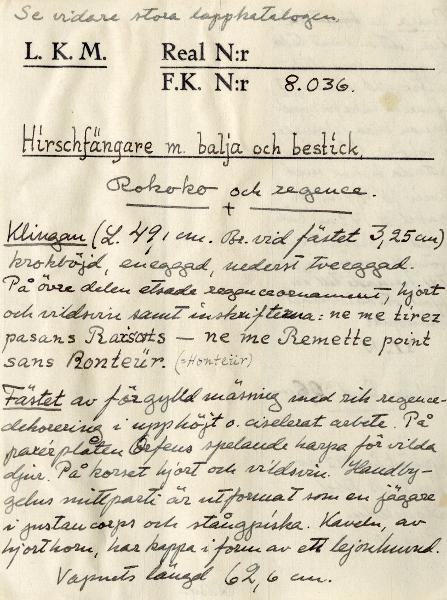 Se vidare stora lappkatalogen.
L. K. M. Real N:r
F.K. N:r 8.036.
Hirschfängare m. balja och bestick.
Rokoko och regence.
Klingan (L. 49,1 cm. Br. vid fästet 3,25 cm)
krokböjd, eneggad, nederst tveeggad.
På övre delen etsade regenceornament, hjort
och vildsvin samt inskrifterna: ne me tirez
pasans Raisots – ne me Remette point
sans Ronteür. (=Honteür)
Fästet av förgylld mässing med rik regence-
dekorering i upphöjt o. ciselerat arbete. På
parérplåten Orfeus spelande harpa för vilda
djur. På korset hjort och vildsvin. Handby-
gelns mittparti är utformat som en jägare
i justaucorps och stångpiska. Kaveln, av
hjorthorn, har kappa i form av ett lejonhuvud.
Vapnets längd 62,6 cm.